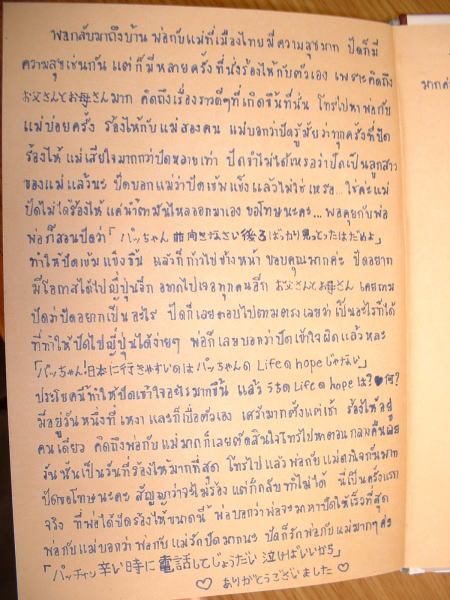 พอกลับมาถึงบ้าน พ่อกับแม่ที่เมืองไทยมีความสุขมาก ปัดก็มี
ความสุขเช่นกัน แต่ก็มีหลายครั้งที่นั่งร้องไห้กับตัวเอง เพราะคิดถึง
お父さんとお母さんมาก คิดถึงเรื่องราวดีๆที่เกิดขึ้นที่นั่น โทรไปหาพ่อกับ
แม่บ่อยครั้ง ร้องไห้กับแม่สองคน แม่บอกว่าปัดรู้มั้ยว่าทุกครั้งที่ปัด
ร้องไห้ แม่เสียใจมากกว่าปัดหลายเท่า ปัดจำไม่ได้เหรอว่าปัดเป็นลูกสาว
ของแม่แล้วนะ ปัดบอกแม่ว่าปัดเข้มแข็งแล้วไม่ใช่เหรอ... ใช่ค่ะแม่
ปัดไม่ได้ร้องไห้ แค่น้ำตามันไหลออกมาเอง ขอโทษนะคะ... พอคุยกับพ่อ
พ่อก็สอนปัดว่า「パッちゃん 前向きなさい後ろばっかり見とったはだめよ」
ทำให้ปัดเข้มแข็งขึ้น แล้วก็ก้าวไปข้างหน้า ขอบคุณมากค่ะ ปัดอยาก
มีโอกาสได้ไปญี่ปุ่นอีก อยากไปเจอทุกคนอีก お父さんとお母さん เคยถาม
ปัดว่าปัดอยากเป็นอะไร ปัดก็เลยตอบไปตามตรงเลยว่า เป็นอะไรก็ได้
ที่ทำให้ปัดไปญี่ปุ่นได้ง่ายๆ พ่อก็เลยบอกว่าปัดเข้าใจผิดแล้วหละ
「パッちゃん!日本に行きやすいのはパッちゃんのLifeのhopeじゃない」
ประโยคนี้ทำให้ปัดเข้าใจอะไรมากขึ้น แล้ว Lifeのhope は?♥何?
มีอยู่วันหนึ่งที่เหงา และก็เบื่อตัวเอง เศร้ามากตั้งแต่เช้า ร้องไห้อยู่
คนเดียว คิดถึงพ่อกับแม่มากก็เลยตัดสินใจโทรไปหาตอนกลางคืน
วันนั้นเป็นวันที่ร้องไห้มากที่สุด โทรไปแล้วพ่อกับแม่ตกใจกันมาก
ปัดขอโทษนะคะ สัญญาว่าจะไม่ร้อง แต่ก็กลับทำไม่ได้ นี่เป็นครั้งแรก
จริงๆ ที่พ่อได้ปัดร้องไห้ขนาดนี้ พ่อบอกว่าพ่อจะมาหาปัดให้เร็วที่สุด
พ่อกับแม่บอกว่า พ่อกับแม่รักปัดมากนะ ปัดก็รักพ่อกับแม่มากๆค่ะ
「パッチャン 辛い時に電話してじょうだい 泣けばいいから」
♡ ありがとうございました ♡